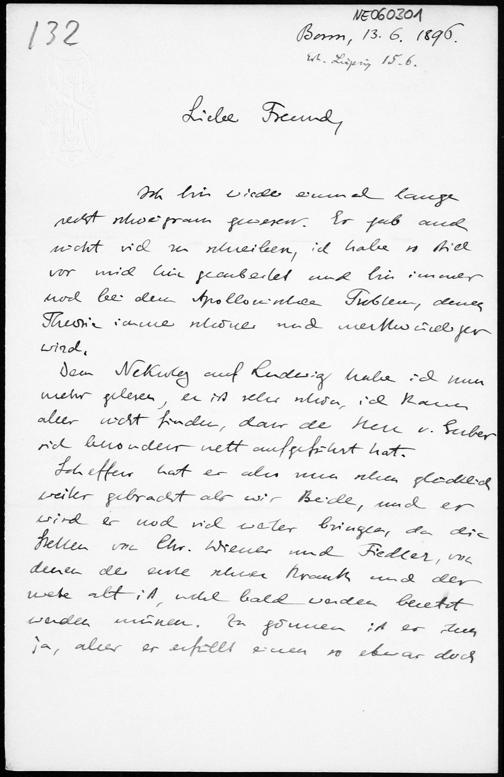 NE060301
132
Bonn, 13. 6. 1896.
Erh. Leipzig 15. 6.
Lieber Freund,
Ich bin wieder einmal lange
recht schweigsam gewesen. Es gab auch
nicht viel zu schreiben, ich habe so still
vor mich hin gearbeitet und bin immer
noch bei dem Apollonischen Problem, dessen
Theorie immer schöner und merkwürdiger
wird.
Den Nekrolog auf Ludwig habe ich nun
mehr gelesen, er ist sehr schön, ich kann
aber nicht finden, dass der Herr v. Gruber
sich besonders nett aufgeführt hat.
Scheffers hat es also nun schon glücklich
weiter gebracht als wir Beide, und er
wird es noch viel weiter bringen, da die
Stellen von Chr. Wiener und Fiedler, von
denen der erste schwer krank und der
zweite alt ist, wohl bald werden besetzt
werden müssen. Zu gönnen ist es ihm
ja, aber es erfüllt einen so etwas doch